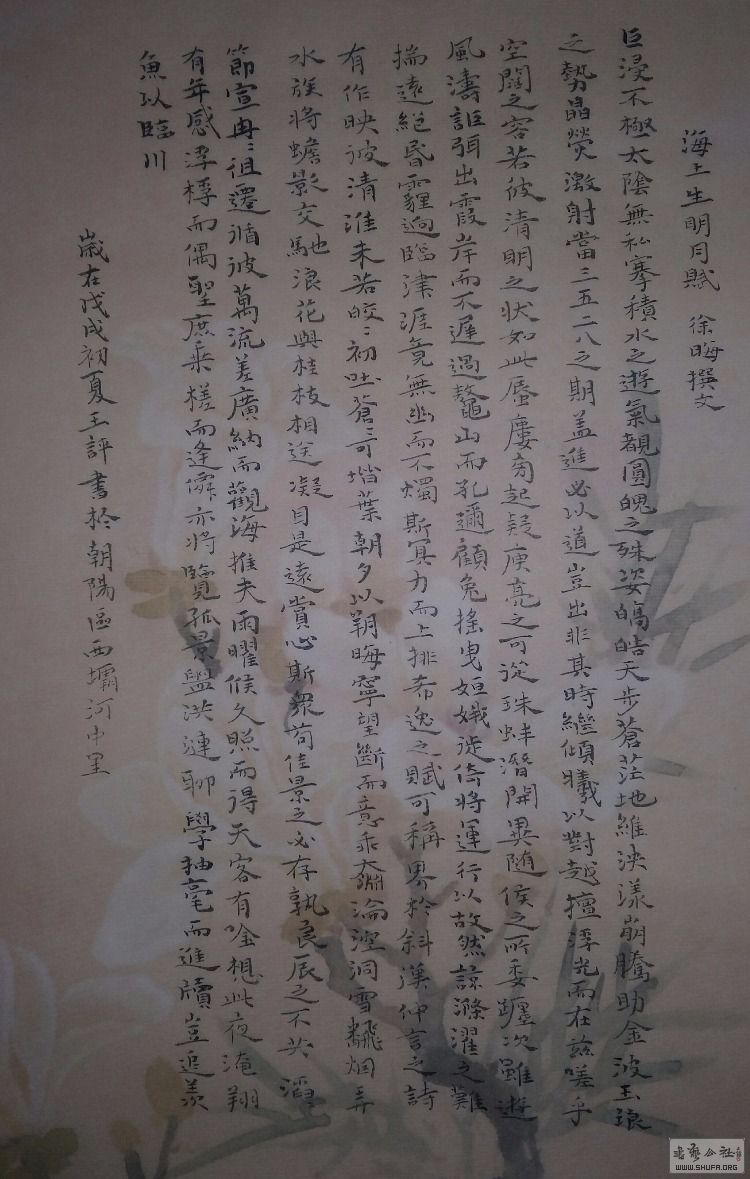 海上生明月賦 徐晦撰文
巨浸不極太陰無私搴積水之遊氣覩圓魄之殊姿皜皜天步蒼茫地維泱漾崩騰助金波玉琅
之勢晶熒激射當三五二八之期盖進必以道豈出非其時繼傾曦以對越擅浮光而在兹嗟乎
空闊之容若彼清明之状如此蜃廔旁起疑庾亮之可從珠蚌潛開異随侯之所委躔次雖遊
風濤詎弭出霞岸而不遲過鼇山而孔邇顧兔搖曳姮娥徙倚將運行以故然諒滌濯之難
揣遠絕昏霾逈臨津涯竟無幽而不燭斯冥力而上排希逸之賦可稱界於斜漢仲言之詩
有作映彼清淮未若皎皎初吐蒼蒼可堦葉朝夕以朔晦寧望斷而意乖奫淪澒洞雪飜烟弄
水族將蟾影交馳浪花與桂枝相送凝目是遠賞心斯衆苟佳景之必存孰良辰之不共滔滔
節宣冉冉徂遷循彼萬流差廣納而觀海推夫兩曜候久照而得天客有唫想此夜淹翔
有年感浮桴而偶聖庶乘槎而逢僊亦將覽孤景盥洪漣聊學抽毫而進牘豈追羡
魚以臨川
歲在戊戌初夏王評書於朝陽區西壩河中里
书艺公社
WWW.SHUFA.ORG